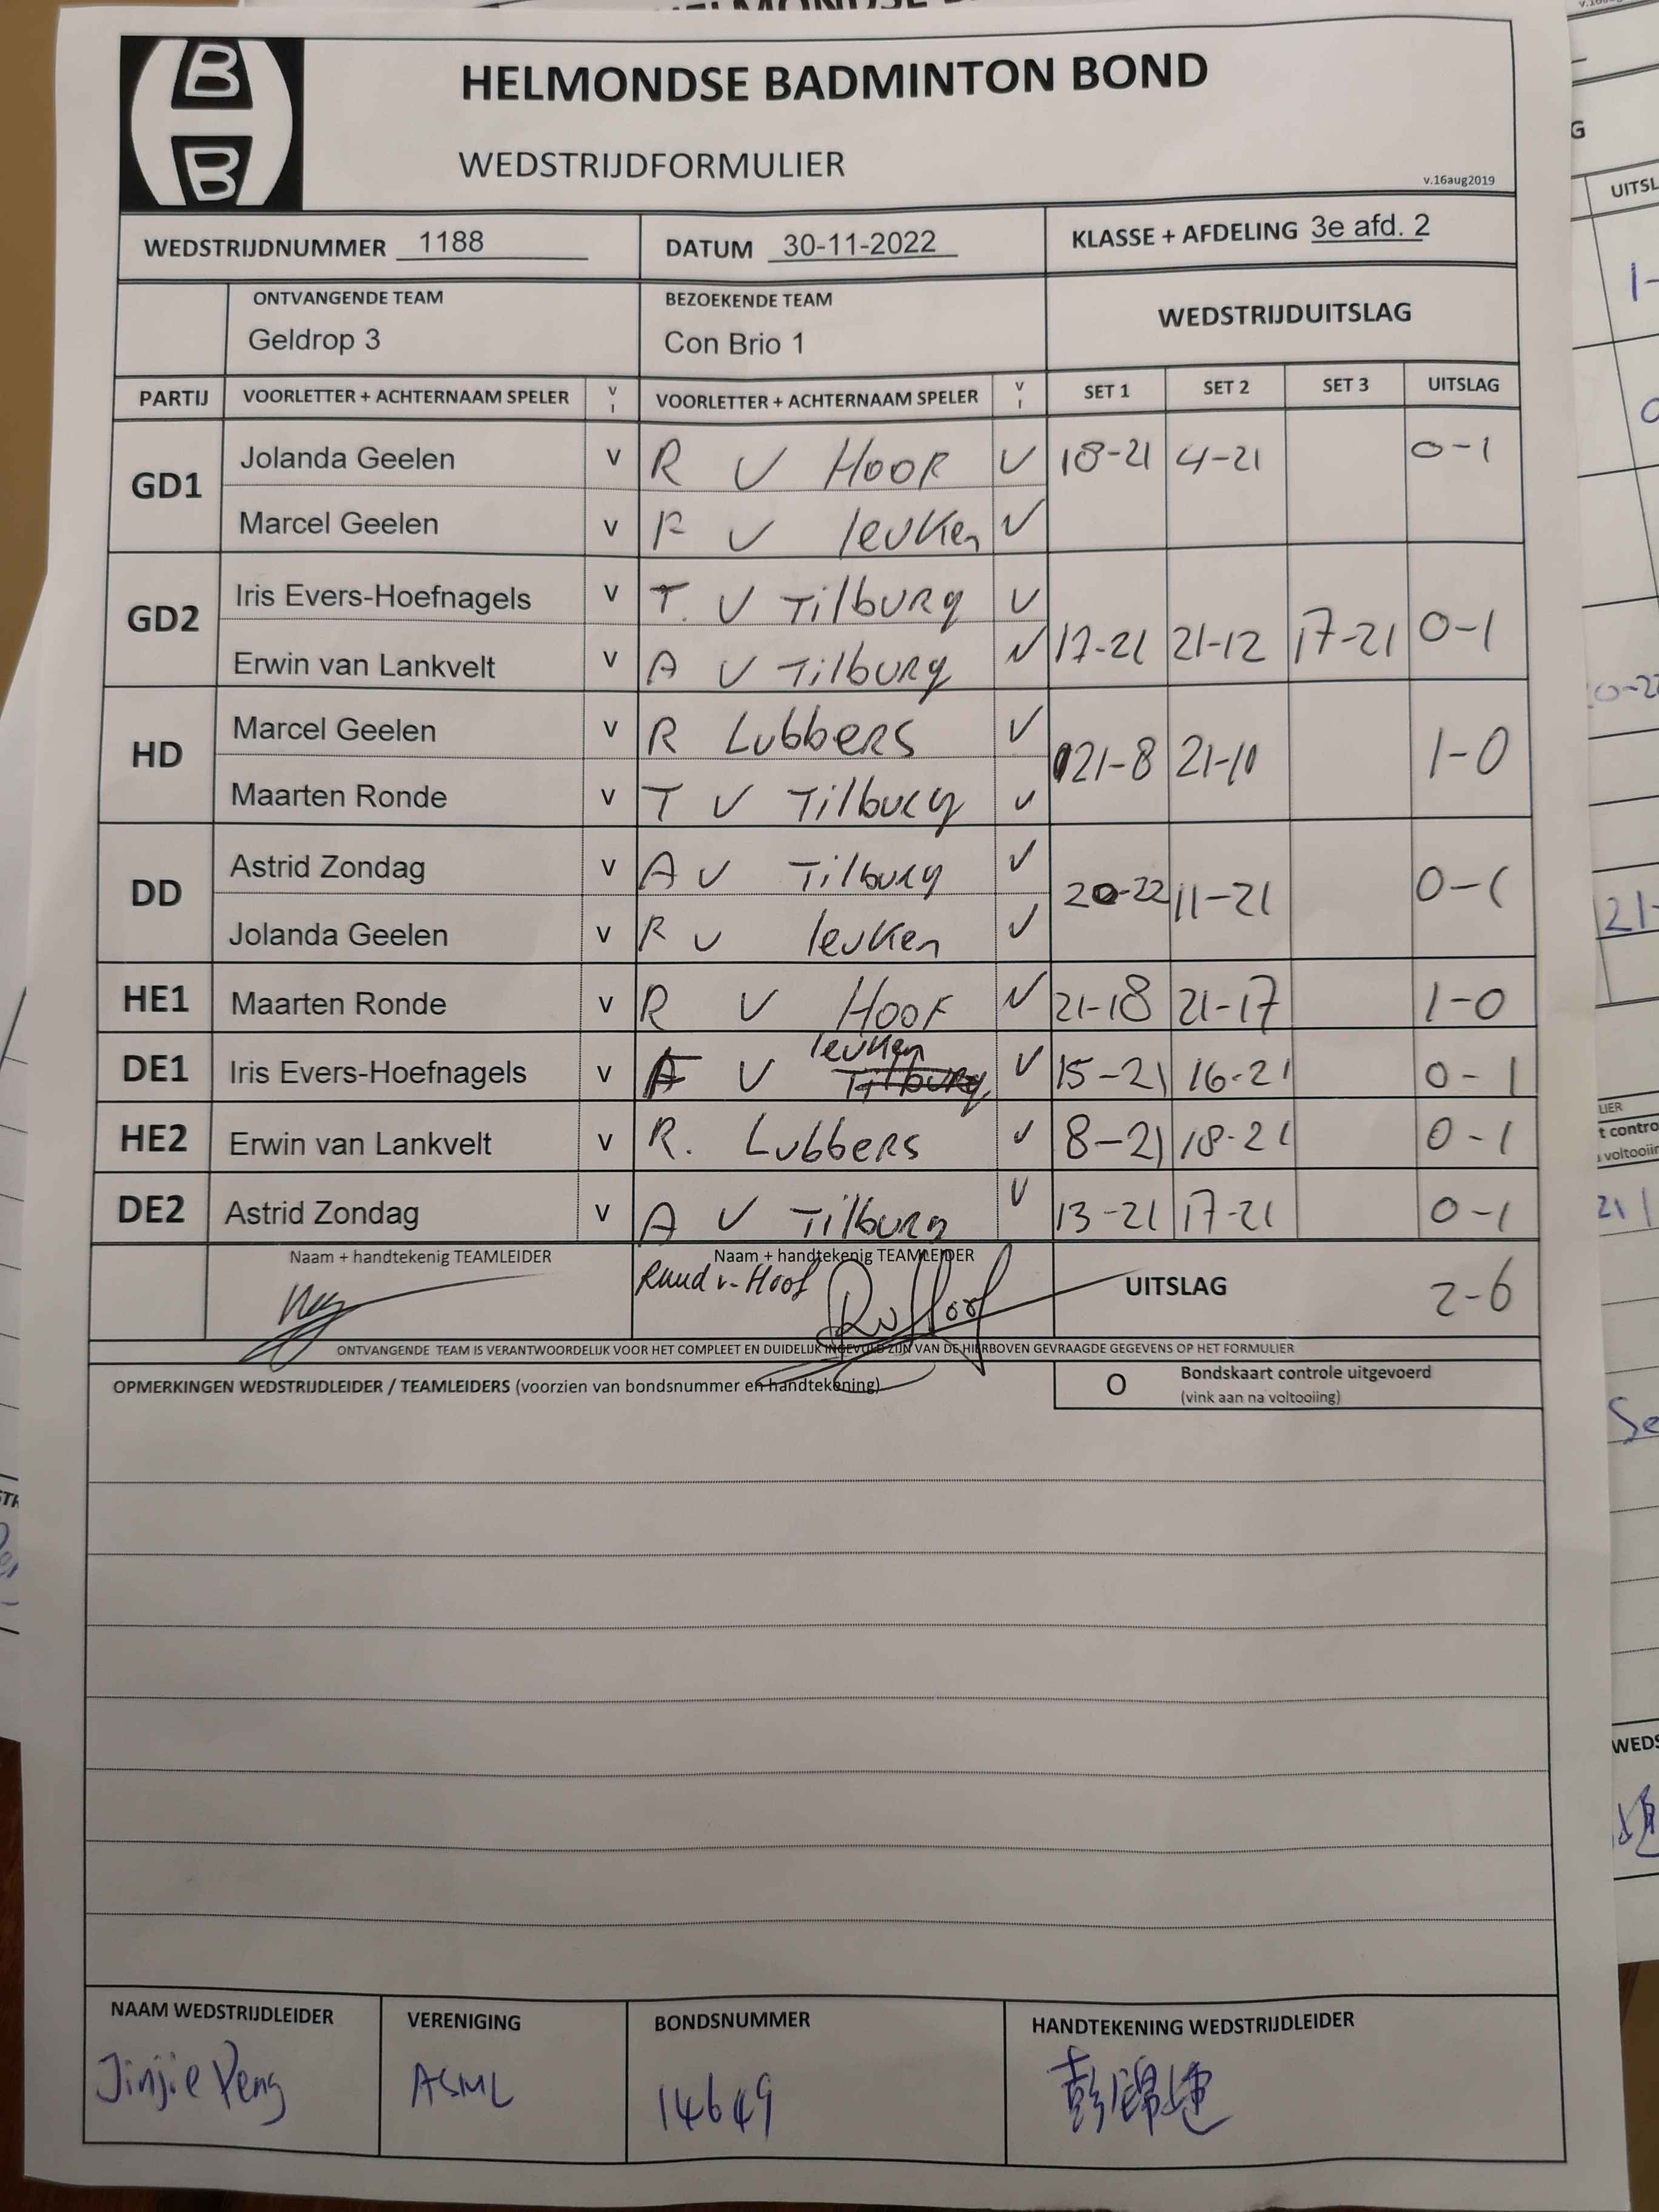 HELMONDSE BADMINTON BOND
WEDSTRIJDFORMULIER
v.16aug2019
WEDSTRIJDNUMMER 1188 DATUM 30-11-2022 KLASSE + AFDELING 3e afd. 2
ONTVANGENDE TEAM BEZOEKENDE TEAM WEDSTRIJDUITSLAG
Geldrop 3 Con Brio 1
PARTIJ VOORLETTER + ACHTERNAAM SPELER V I VOORLETTER + ACHTERNAAM SPELER V I SET 1 SET 2 SET 3 UITSLAG
GD1 Jolanda Geelen v R V HOOF V 18-21 4-21 0-1
Marcel Geelen v R V leuken V
GD2 Iris Evers-Hoefnagels v T. V TilbuRg V 17-21 21-12 17-21 0-1
Erwin van Lankvelt v A V TilbuRg V
HD Marcel Geelen v R LubbeRs V 21-8 21-10 1-0
Maarten Ronde v T V Tilburg v
DD Astrid Zondag v A V Tilburg V 20-22 11-21 0-1
Jolanda Geelen v R V leuken V
HE1 Maarten Ronde v R V HOOF V 21-18 21-17 1-0
DE1 Iris Evers-Hoefnagels v V leuken Tilburg V 15-21 16-21 0-1
HE2 Erwin van Lankvelt v R. LubbeRs v 8-21 18-21 0-1
DE2 Astrid Zondag v A V Tilburg V 13-21 17-21 0-1
Naam + handtekenig TEAMLEIDER Naam + handtekenig TEAMLEIDER
Ruud v. Hoof RvHoof UITSLAG 2-6
ONTVANGENDE TEAM IS VERANTWOORDELIJK VOOR HET COMPLEET EN DUIDELIJK INGEVULD ZIJN VAN DE HIERBOVEN GEVRAAGDE GEGEVENS OP HET FORMULIER
OPMERKINGEN WEDSTRIJDLEIDER / TEAMLEIDERS (voorzien van bondsnummer en handtekening) O Bondskaart controle uitgevoerd
(vink aan na voltooiing)
NAAM WEDSTRIJDLEIDER VERENIGING BONDSNUMMER HANDTEKENING WEDSTRIJDLEIDER
Jinjie Peng ASML 14649 彭锦捷